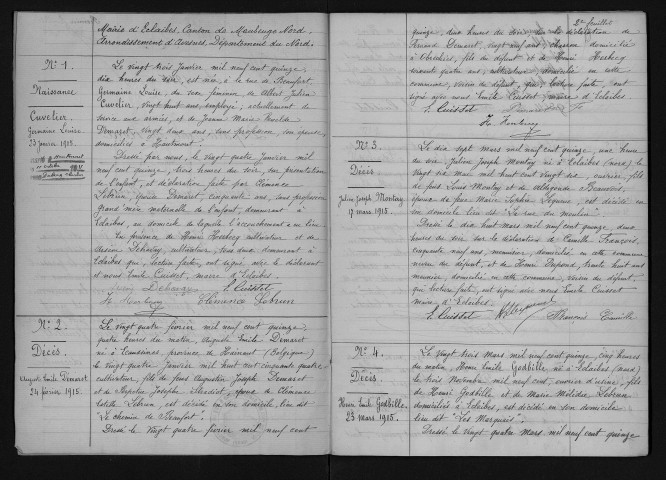 Mairie d'Eclaibes. Canton de Maubeuge Nord.
Arrondissement d'Avesnes. Département du Nord.
N° 1.
Naissance
Cuvelier
Germaine Louise
23 janvier 1915.
Le vingt trois Janvier mil neuf cent quinze,
dix heures du soir, est née, à la rue de Beaufort,
Germaine Louise, du sexe féminin de Albert Julien
Cuvelier, vingt huit ans, employé, actuellement de
service aux armées, et de Jeanne Marie
Demaret, vingt deux ans, sans profession, son épouse,
domiciliés à Hautmont.
Dressé par nous, le vingt quatre Janvier mil
neuf cent quinze, trois heures du soir, sur présentation
de l'enfant, et déclaration faite par Clémence
Lebrun, épouse Demaret, cinquante ans, sans profession
grand'mère maternelle de l'enfant, demeurant à
Eclaibes, au domicile de laquelle l'accouchement a eu lieu
En présence de Henri cultivateur et de
cultivateur, tous deux demeurant à
Eclaibes qui, lecture faite, ont signé avec la déclarante
et nous Emile Cuisset, maire d'Eclaibes.
E. Cuisset
Clémence Lebrun
N° 2.
Décès.
Auguste Emile Demaret
24 février 1915.
Le vingt quatre février mil neuf cent quinze,
quatre heures du matin, Auguste Emile Demaret
né à province de Hainaut (Belgique)
le vingt quatre Janvier mil huit cent cinquante quatre
cultivateur, fils de feus Augustin Joseph Demaret
et de Josèphe époux de Clémence
Lebrun, est décédé en son domicile, lieu dit
"Le chemin de Beaufort".
Dressé le vingt quatre février mil neuf cent
2e feuillet
quinze, deux heures du soir, sur la déclaration de
vingt neuf ans, domicilié
à fils du défunt et de Henri
quarante quatre ans, cultivateur, domicilié en cette
commune, voisin du défunt, qui, lecture faite, ont
signé avec nous Emile Cuisset, maire d'Eclaibes
E. Cuisset
N° 3.
Décès
Julien Joseph Montay
17 mars 1915.
Le dix sept mars mil neuf cent quinze, une heure
du soir, Julien Joseph Montay né à Eclaibes (nord) le
vingt six mai mil huit cent vingt six, ouvrier, fils
de feus Louis Montay et de Aldegonde
époux de feue Marie Sophie est décédé en
son domicile lieu dit "La rue du moulin".
Dressé le dix huit mars mil neuf cent quinze, deux
heures du soir sur la déclaration de Camille François,
cinquante neuf ans, menuisier, domicilié en cette commune
voisin du défunt, et de Henri Dupend, trente huit ans
domicilié en cette commune, voisin du défunt,
qui, lecture faite, ont signé avec nous Emile Cuisset
maire, d'Eclaibes.
E. Cuisset
François Camille
N° 4.
Décès
Henri Emile Godbille
23 mars 1915.
Le vingt trois Mars mil neuf cent quinze, cinq heures
du matin, Henri Emile Godbille né à Eclaibes, (nord)
le trois Novembre mil neuf cent, ouvrier d'usine, fils
de Henri Godbille et de Marie Lebrun
domiciliés à Eclaibes, est décédé en son domicile
lieu dit "Les Marquais".
Dressé le vingt quatre mars mil neuf cent quinze